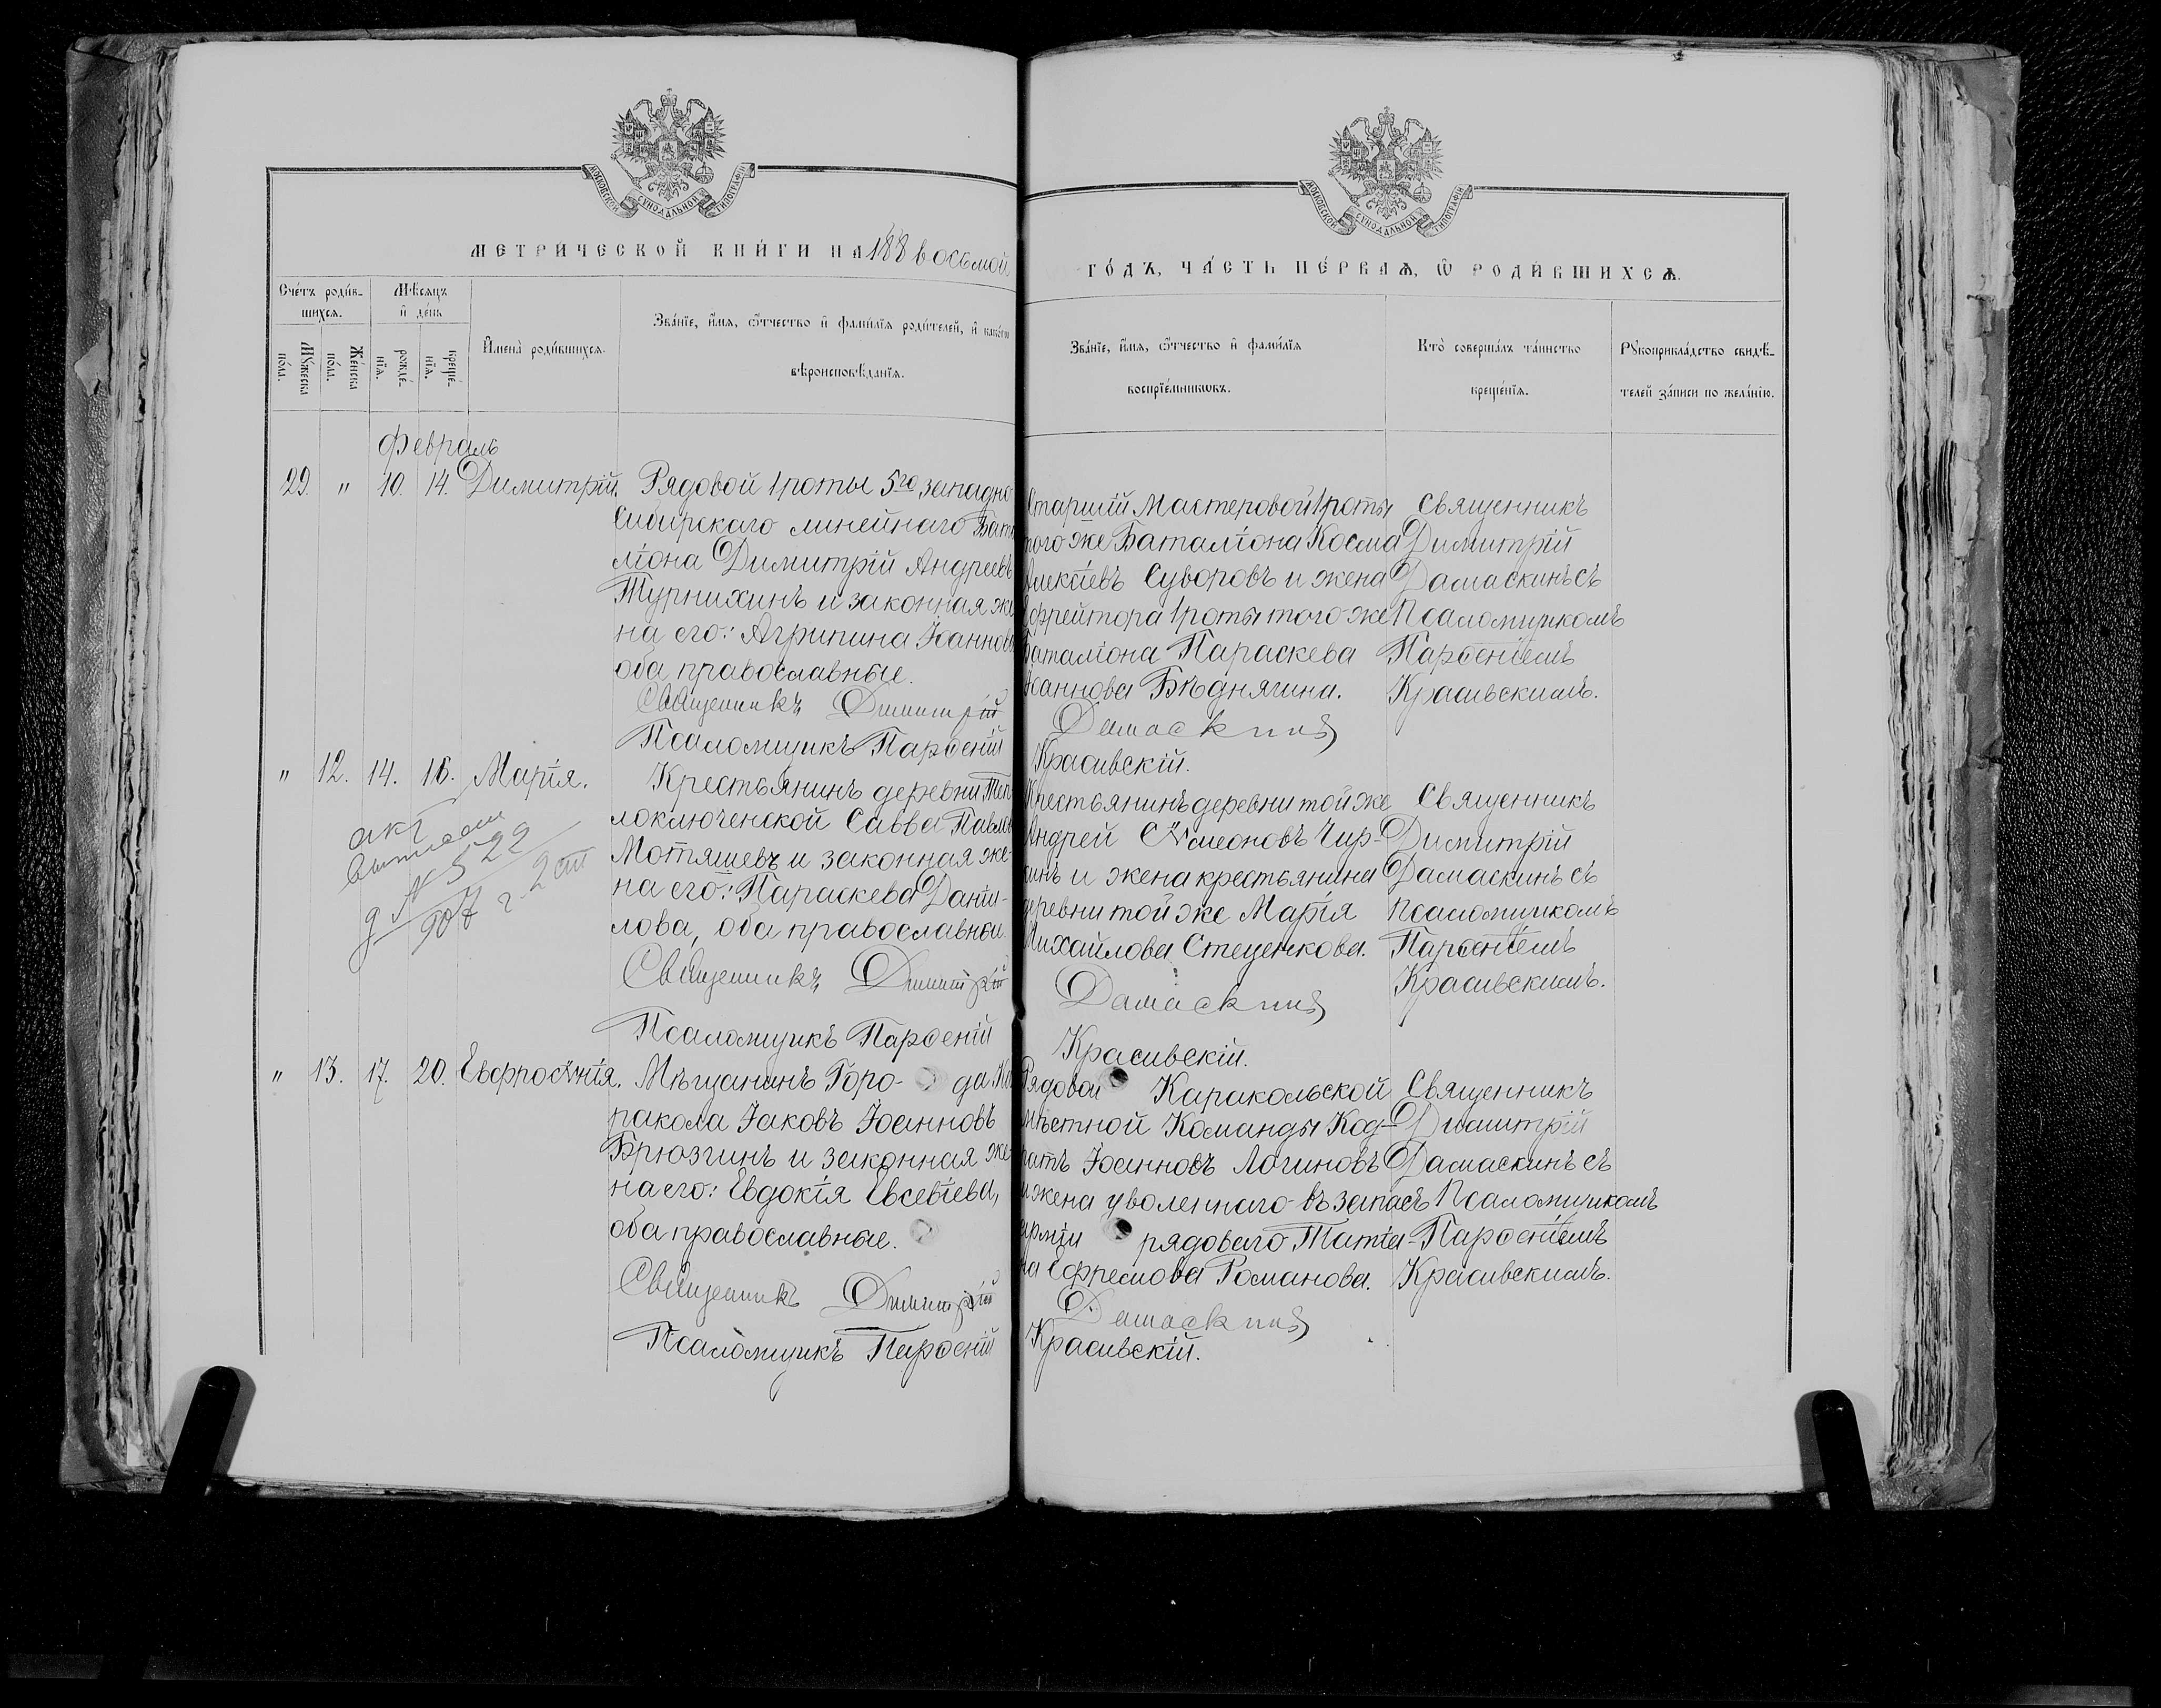 МОСКОВСКОЙ СУНОДАЛЬНОЙ ТИПОГРАФІИ
МОСКОВСКОЙ СУНОДАЛЬНОЙ ТИПОГРАФІИ
МЕТРИ́ЧЕСКОЙ КНИ́ГИ НА 188 восьмой
ГО́ДЪ, ЧА́СТЬ ПЕ́РВАѦ, Ѡ РОДИ́ВШИХСѦ.
Сче́тъ роди́в-
шихсѧ.
Мѣ́сѧцъ
и҆ де́нь
Мꙋ́жеска
по́ла.
Же́нска
по́ла.
рожде́-
нїѧ.
креще́-
нїѧ.
И҆мена̀ роди́вшихсѧ.
Зва́нїе, и҆́мѧ, ѻ҆́тчество и҆ фами́лїѧ роди́телей, и҆ како́гѡ
вѣроисповѣ́данїѧ.
Зва́нїе, и҆́мѧ, ѻ҆́тчество и҆ фами́лїѧ
воспрїе́мникѡвъ.
Кто̀ соверша́лъ та́инство
креще́нїѧ.
Рꙋкоприкла́дство свидѣ́-
телей за́писи по жела́нїю.
Февраль
29. " 10. 14. Димитрій. Рядовой 1 роты 5го западно
Сибирскаго линейнаго Бата
ліона Димитрій Андреевъ
Турнихинъ и законная же
на его: Агрипина Іоаннова
оба православные.
Священникъ Димитрій
Псаломщикъ Парѳеній
Старшій Мастеровой 1 роты
того же Баталіона Косма
Алексіевъ Суворовъ и жена
Ефрейтора 1 роты того же
Баталіона Параскева
Іоаннова Бѣднягина.
Дамаскинъ
Красивскій.
Священникъ
Димитрій
Дамаскинъ съ
Псаломщикомъ
Парѳеніемъ
Красивскимъ.
" 12. 14. 16. Марія. Крестьянинъ деревни Теп
лоключенской Савва Павлов
Мотяшевъ и законная же-
на его: Параскева Даніи-
лова, оба православные.
Священникъ Димитрій
Псаломщикъ Парѳеній
акт
выписан
д № 522
907 г.
Крестьянинъ деревни той же
Андрей Сѵмеоновъ Чир-
инъ и жена крестьянина
деревни той же Марія
Михайлова Стеценкова.
Дамаскинъ
Красивскій.
Священникъ
Димитрій
Дамаскинъ съ
Псаломщикомъ
Парѳеніемъ
Красивскимъ.
" 13. 17. 20. Евфросѵнія. Мѣщанинъ Горо- да Ка
ракола Іаковъ Іоанновъ
Брюзгинъ и законная же-
на его: Евдокія Евсевіева,
оба православные.
Священникъ Димитрій
Псаломщикъ Парѳеній
Рядовой Каракольской
мѣстной Команды Код-
ратъ Іоанновъ Логиновъ
и жена уволеннаго въ запасъ
арміи рядоваго Татіа-
на Ефремова Романова.
Дамаскинъ
Красивскій.
Священникъ
Димитрій
Дамаскинъ съ
Псаломщикомъ
Парѳеніемъ
Красивскимъ.